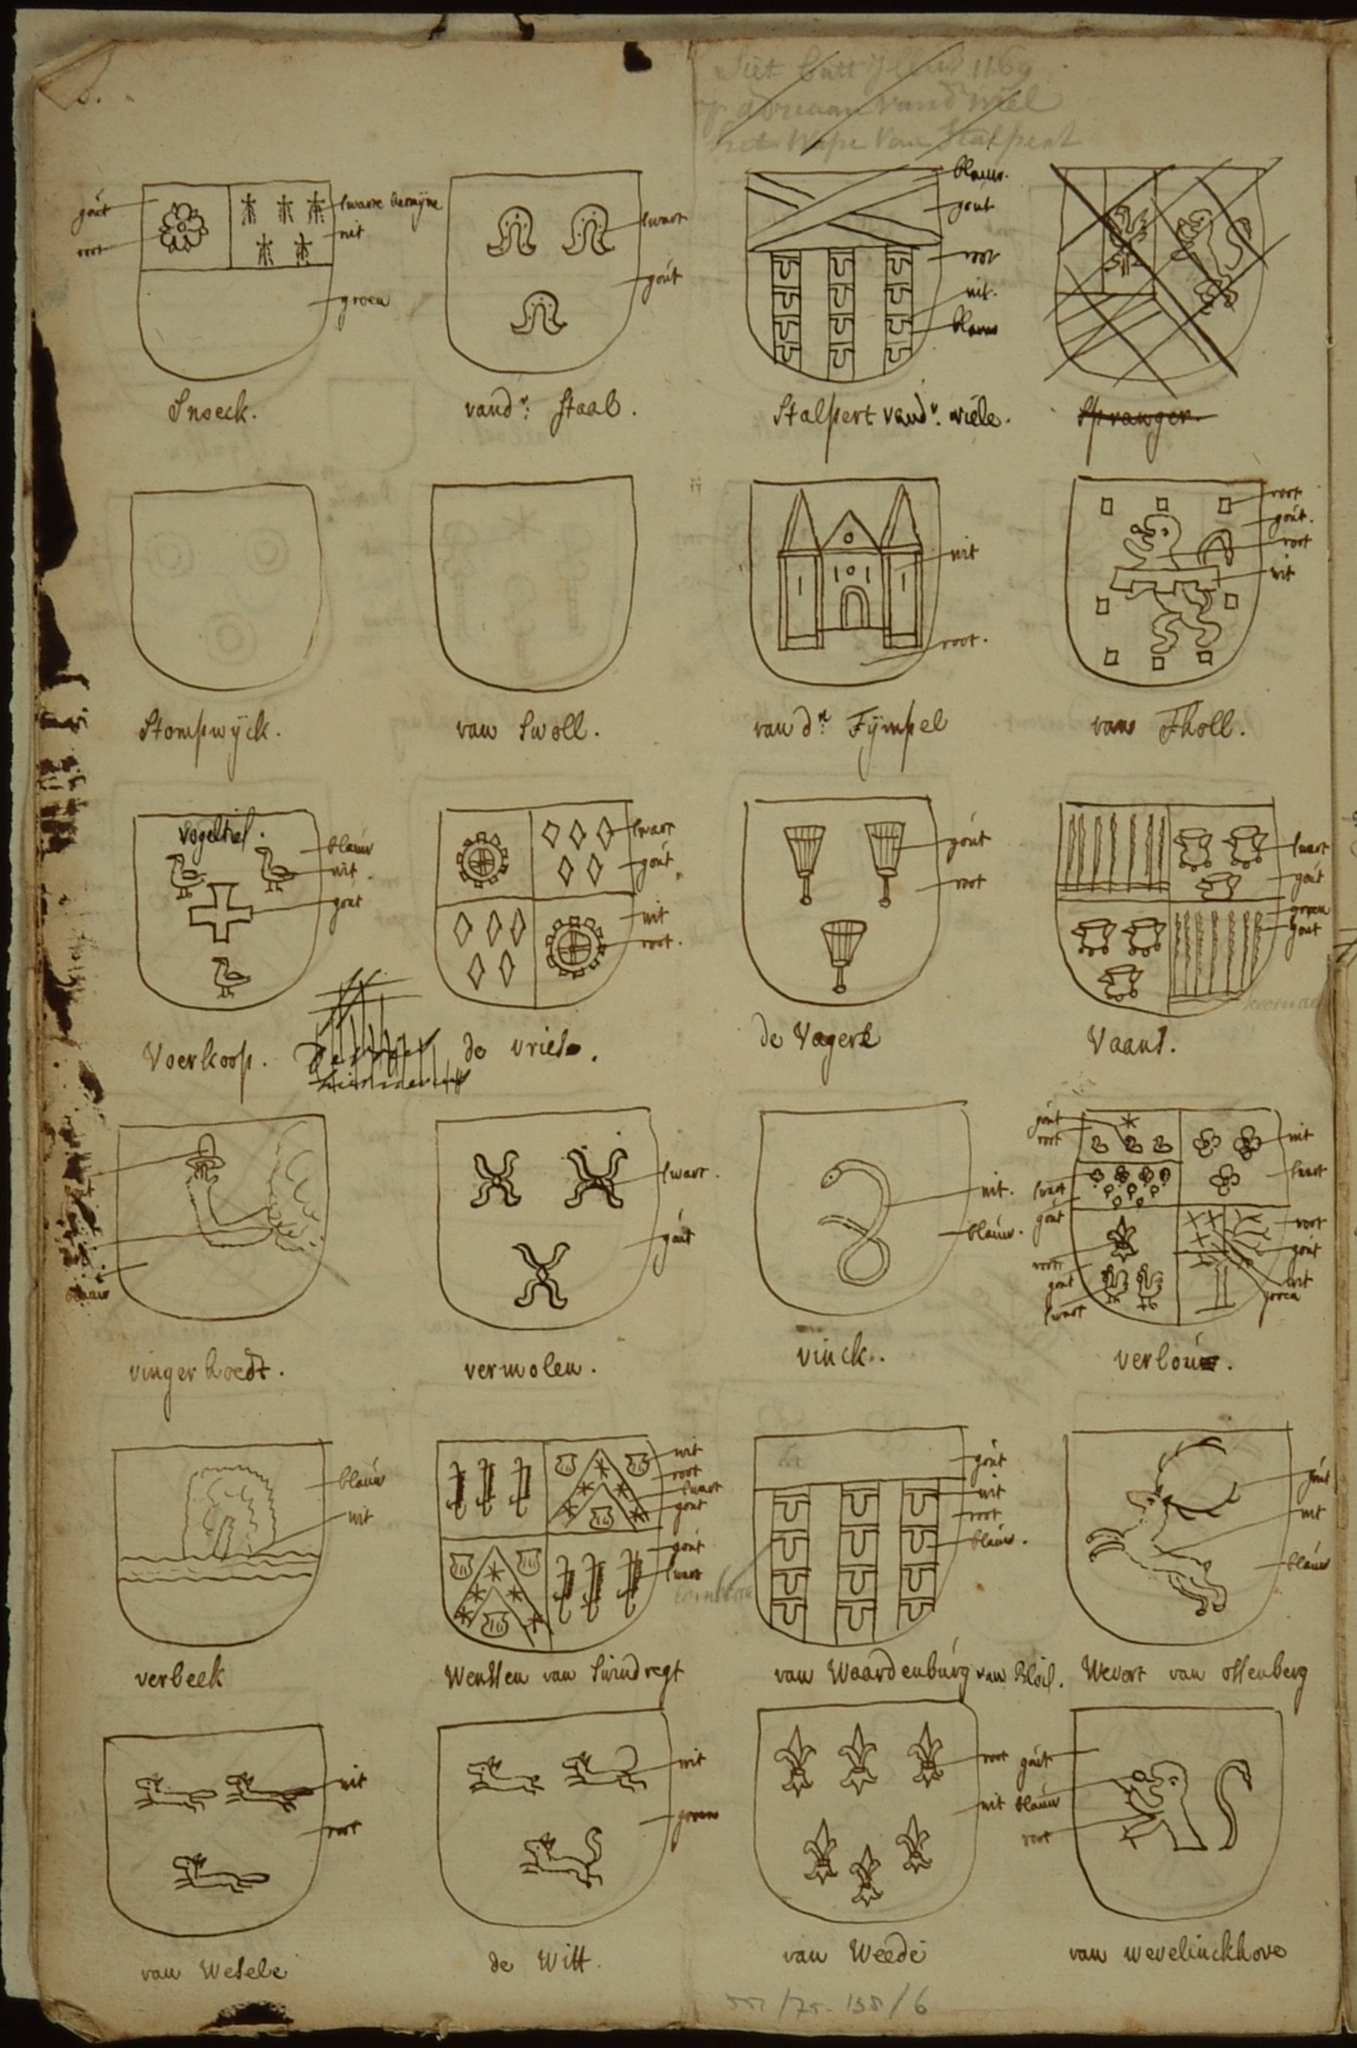 6.
op adriaan vand wiel
het Wape van Stalpert
gout
root
swarte hermijne
wit
groen
swart
gout
blauw.
gout
root
wit.
blauw
Snoeck.
vandr: Staal.
Stalpert vandr. wiele.
Spranger.
wit
root.
root
gout.
root
wit
Stompwijck.
van Swoll.
van dr Tijmpel
van Tholl.
Vogeltiel.
blauw
wit.
gout
swart
gout
wit
root.
gout
root
swart
gout
groen
gout
Voerkoop.
de vries.
de Vagere
Vaans.
blauw
swart.
gout
wit.
blauw.
gout
root
swart
gout
root
gout
swart
wit
swart
root
gout
wit
groen
vingerhoedt.
vermolen.
vinck..
verlou.
blauw
wit
wit
root
swart
gout
gout
swart
gout
wit
root
blauw.
gout
wit
blauw
verbeek
Wenssen van Swindregt
van Waardenburg van Bloil.
Wevort van Ossenberg
wit
root
wit
groen
root
wit
gout
blauw
root
van Wesele
de Witt.
van Weede
van wevelinckhove
138/6